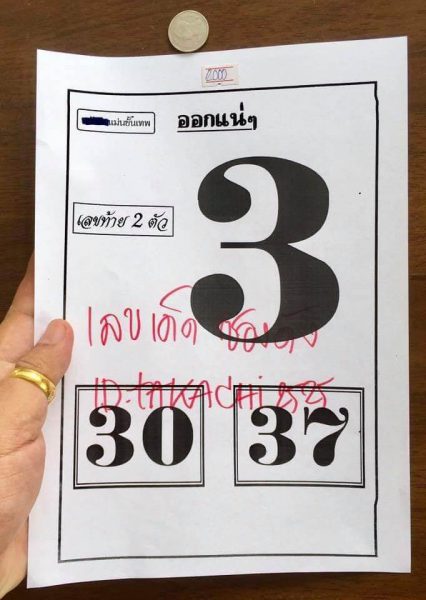 2000
แม่นขั้นเทพ
ออกแน่ๆ
3
เลขท้าย 2 ตัว
เลขเด็ด ซองดัง
ID:TAKACHI
30 37